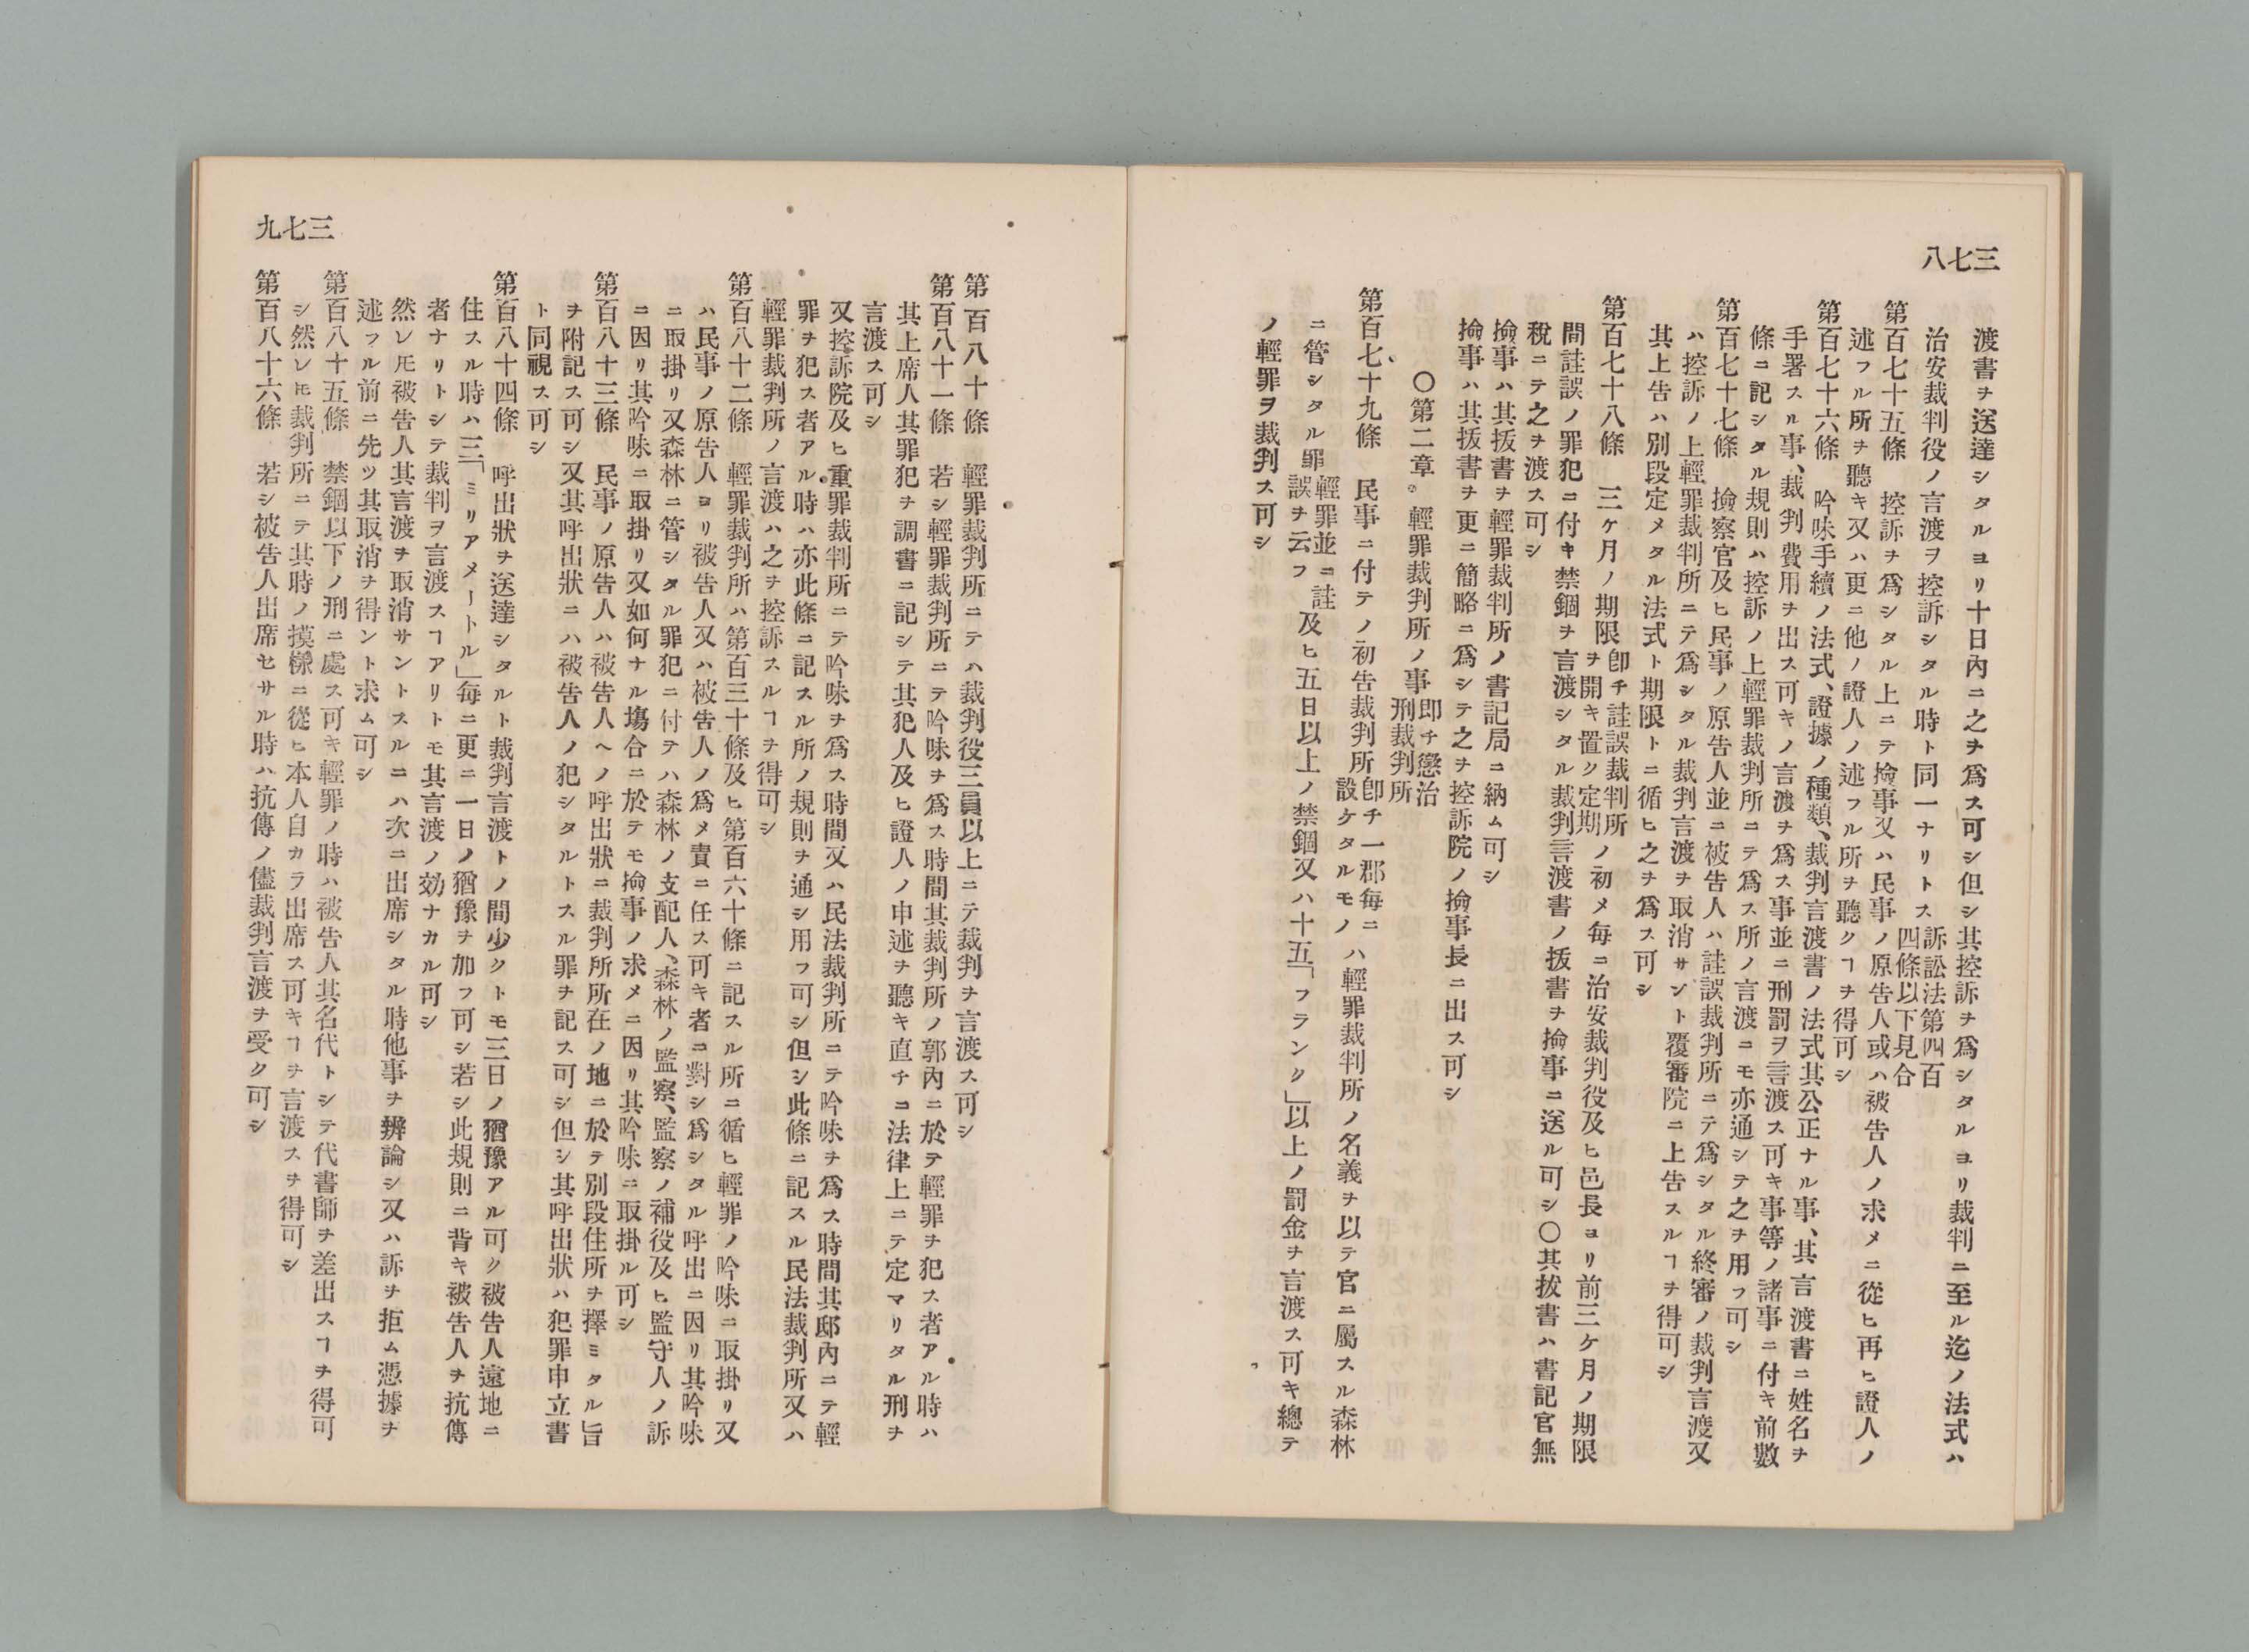 三七八
渡書ヲ送達シタルヨリ十日內ニ之ヲ爲ス可シ但シ其控訴ヲ爲シタルヨリ裁判ニ至ル迄ノ法式ハ
治安裁判役ノ言渡ヲ控訴シタル時ト同一ナリトス訴訟法第四百四條以下見合
第百七十五條 控訴ヲ爲シタル上ニテ撿事又ハ民事ノ原告人或ハ被告人ノ求メニ從ヒ再ヒ證人ノ
述フル所ヲ聽キ又ハ更ニ他ノ證人ノ述フル所ヲ聽クヿヲ得可シ
第百七十六條 吟味手續ノ法式、證據ノ種類、裁判言渡書ノ法式其公正ナル事、其言渡書ニ姓名ヲ
手署スル事、裁判費用ヲ出ス可キノ言渡ヲ爲ス事並ニ刑罰ヲ言渡ス可キ事等ノ諸事ニ付キ前數
條ニ記シタル規則ハ控訴ノ上輕罪裁判所ニテ爲ス所ノ言渡ニモ亦通シテ之ヲ用フ可シ
第百七十七條 撿察官及ヒ民事ノ原告人並ニ被告人ハ註誤裁判所ニテ爲シタル終審ノ裁判言渡又
ハ控訴ノ上輕罪裁判所ニテ爲シタル裁判言渡ヲ取消サント覆審院ニ上告スルヿヲ得可シ
其上告ハ別段定メタル法式ト期限トニ循ヒ之ヲ爲ス可シ
第百七十八條 三ケ月ノ期限卽チ註誤裁判所ヲ開キ置ク定期ノ初メ每ニ治安裁判役及ヒ邑長ヨリ前三ケ月ノ期限
間註誤ノ罪犯ニ付キ禁錮ヲ言渡シタル裁判言渡書ノ拔書ヲ撿事ニ送ル可シ〇其拔書ハ書記官無
稅ニテ之ヲ渡ス可シ
撿事ハ其拔書ヲ輕罪裁判所ノ書記局ニ納ム可シ
撿事ハ其拔書ヲ更ニ簡略ニ爲シテ之ヲ控訴院ノ撿事長ニ出ス可シ
〇第二章 輕罪裁判所ノ事卽チ懲治刑裁判所
第百七十九條 民事ニ付テノ初告裁判所卽チ一郡每ニ設ケタルモノハ輕罪裁判所ノ名義ヲ以テ官ニ屬スル森林
ニ管シタル罪輕罪並ニ註誤ヲ云フ及ヒ五日以上ノ禁錮又ハ十五「フランク」以上ノ罰金ヲ言渡ス可キ總テ
ノ輕罪ヲ裁判ス可シ
三七九
第百八十條 輕罪裁判所ニテハ裁判役三員以上ニテ裁判ヲ言渡ス可シ
第百八十一條 若シ輕罪裁判所ニテ吟味ヲ爲ス時間其裁判所ノ郭內ニ於テ輕罪ヲ犯ス者アル時ハ
其上席人其罪犯ヲ調書ニ記シテ其犯人及ヒ證人ノ申述ヲ聽キ直チニ法律上ニテ定マリタル刑ヲ
言渡ス可シ
又控訴院及ヒ重罪裁判所ニテ吟味ヲ爲ス時間又ハ民法裁判所ニテ吟味ヲ爲ス時間其邸內ニテ輕
罪ヲ犯ス者アル時ハ亦此條ニ記スル所ノ規則ヲ通シ用フ可シ但シ此條ニ記スル民法裁判所又ハ
輕罪裁判所ノ言渡ハ之ヲ控訴スルヿヲ得可シ
第百八十二條 輕罪裁判所ハ第百三十條及ヒ第百六十條ニ記スル所ニ循ヒ輕罪ノ吟味ニ取掛リ又
ハ民事ノ原告人ヨリ被告人又ハ被告人ノ爲メ責ニ任ス可キ者ニ對シ爲シタル呼出ニ因リ其吟味
ニ取掛リ又森林ニ管シタル罪犯ニ付テハ森林ノ支配人、森林ノ監察、監察ノ補役及ヒ監守人ノ訴
ニ因リ其吟味ニ取掛リ又如何ナル塲合ニ於テモ撿事ノ求メニ因リ其吟味ニ取掛ル可シ
第百八十三條 民事ノ原告人ハ被告人ヘノ呼出狀ニ裁判所所在ノ地ニ於テ別段住所ヲ擇ミタル旨
ヲ附記ス可シ又其呼出狀ニハ被告人ノ犯シタルトスル罪ヲ記ス可シ但シ其呼出狀ハ犯罪申立書
ト同視ス可シ
第百八十四條 呼出狀ヲ送達シタルト裁判言渡トノ間少クトモ三日ノ猶豫アル可ク被告人遠地ニ
住スル時ハ三「ミリアメートル」每ニ更ニ一日ノ猶豫ヲ加フ可シ若シ此規則ニ背キ被告人ヲ抗傳
者ナリトシテ裁判ヲ言渡スヿアリトモ其言渡ノ効ナカル可シ
然レ𪜈被告人其言渡ヲ取消サントスルニハ次ニ出席シタル時他事ヲ辨論シ又ハ訴ヲ拒ム憑據ヲ
述フル前ニ先ツ其取消ヲ得ント求ム可シ
第百八十五條 禁錮以下ノ刑ニ處ス可キ輕罪ノ時ハ被告人其名代トシテ代書師ヲ差出スヿヲ得可
シ然レ𪜈裁判所ニテ其時ノ摸樣ニ從ヒ本人自カラ出席ス可キヿヲ言渡スヲ得可シ
第百八十六條 若シ被告人出席セサル時ハ抗傳ノ儘裁判言渡ヲ受ク可シ